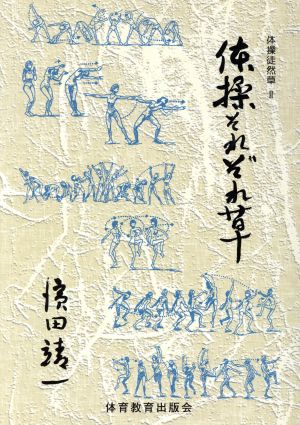 体操徒然草 Ⅱ
体操それぞれ草
濱田靖一
体育教育出版会